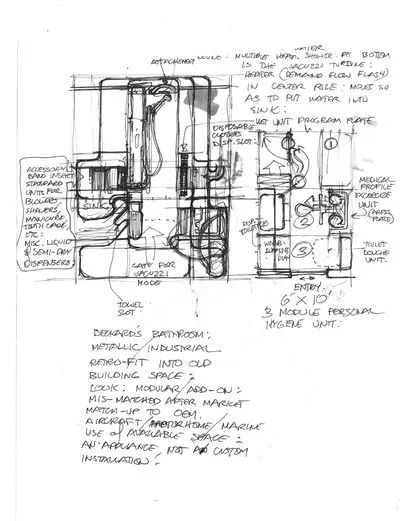 NOTE: MULTIPLE HEAD SHOWER: AT BOTTOM
WATER
IS THE JACUZZI TURBINE:
HEATER (DEMAND FLOW FLASH)
IN CENTER POLE: MOVES SO
AS TO PUT WATER INTO
SINK:
WET UNIT PROGRAM PLATE
DISPOSABLE
CLOTHES
DISP. SLOT:
ACCESSORY
BAND INSET
STANDARD
UNITS FOR
BLOWERS
SHAVERS
TOOTH CARE
ETC:
MISC. LIQUID
& SEMI-DRY
DISPENSERS:
SINK
GATE FOR
JACUZZI
MODE
TOWEL
SLOT
MEDICAL
PROFILE
EXCERCISE
UNIT
(PRESS
PLATE)
2
3
TOILET
DOUCHE
UNIT.
ENTRY
6' X 10'
3 MODULE PERSONAL
HYGIENE UNIT:
DECKARD'S BATHROOM:
METALLIC/INDUSTRIAL
RETRO-FIT INTO OLD
BUILDING SPACE:
LOOK: MODULAR/ADD-ON:
MIS-MATCHED AFTER MARKET
MATCH-UP TO OEM.
AIRCRAFT/MOTORHOME/MARINE
USE of AVAILABLE SPACE:
AN APPLIANCE, NOT A CUSTOM
INSTALLATION: